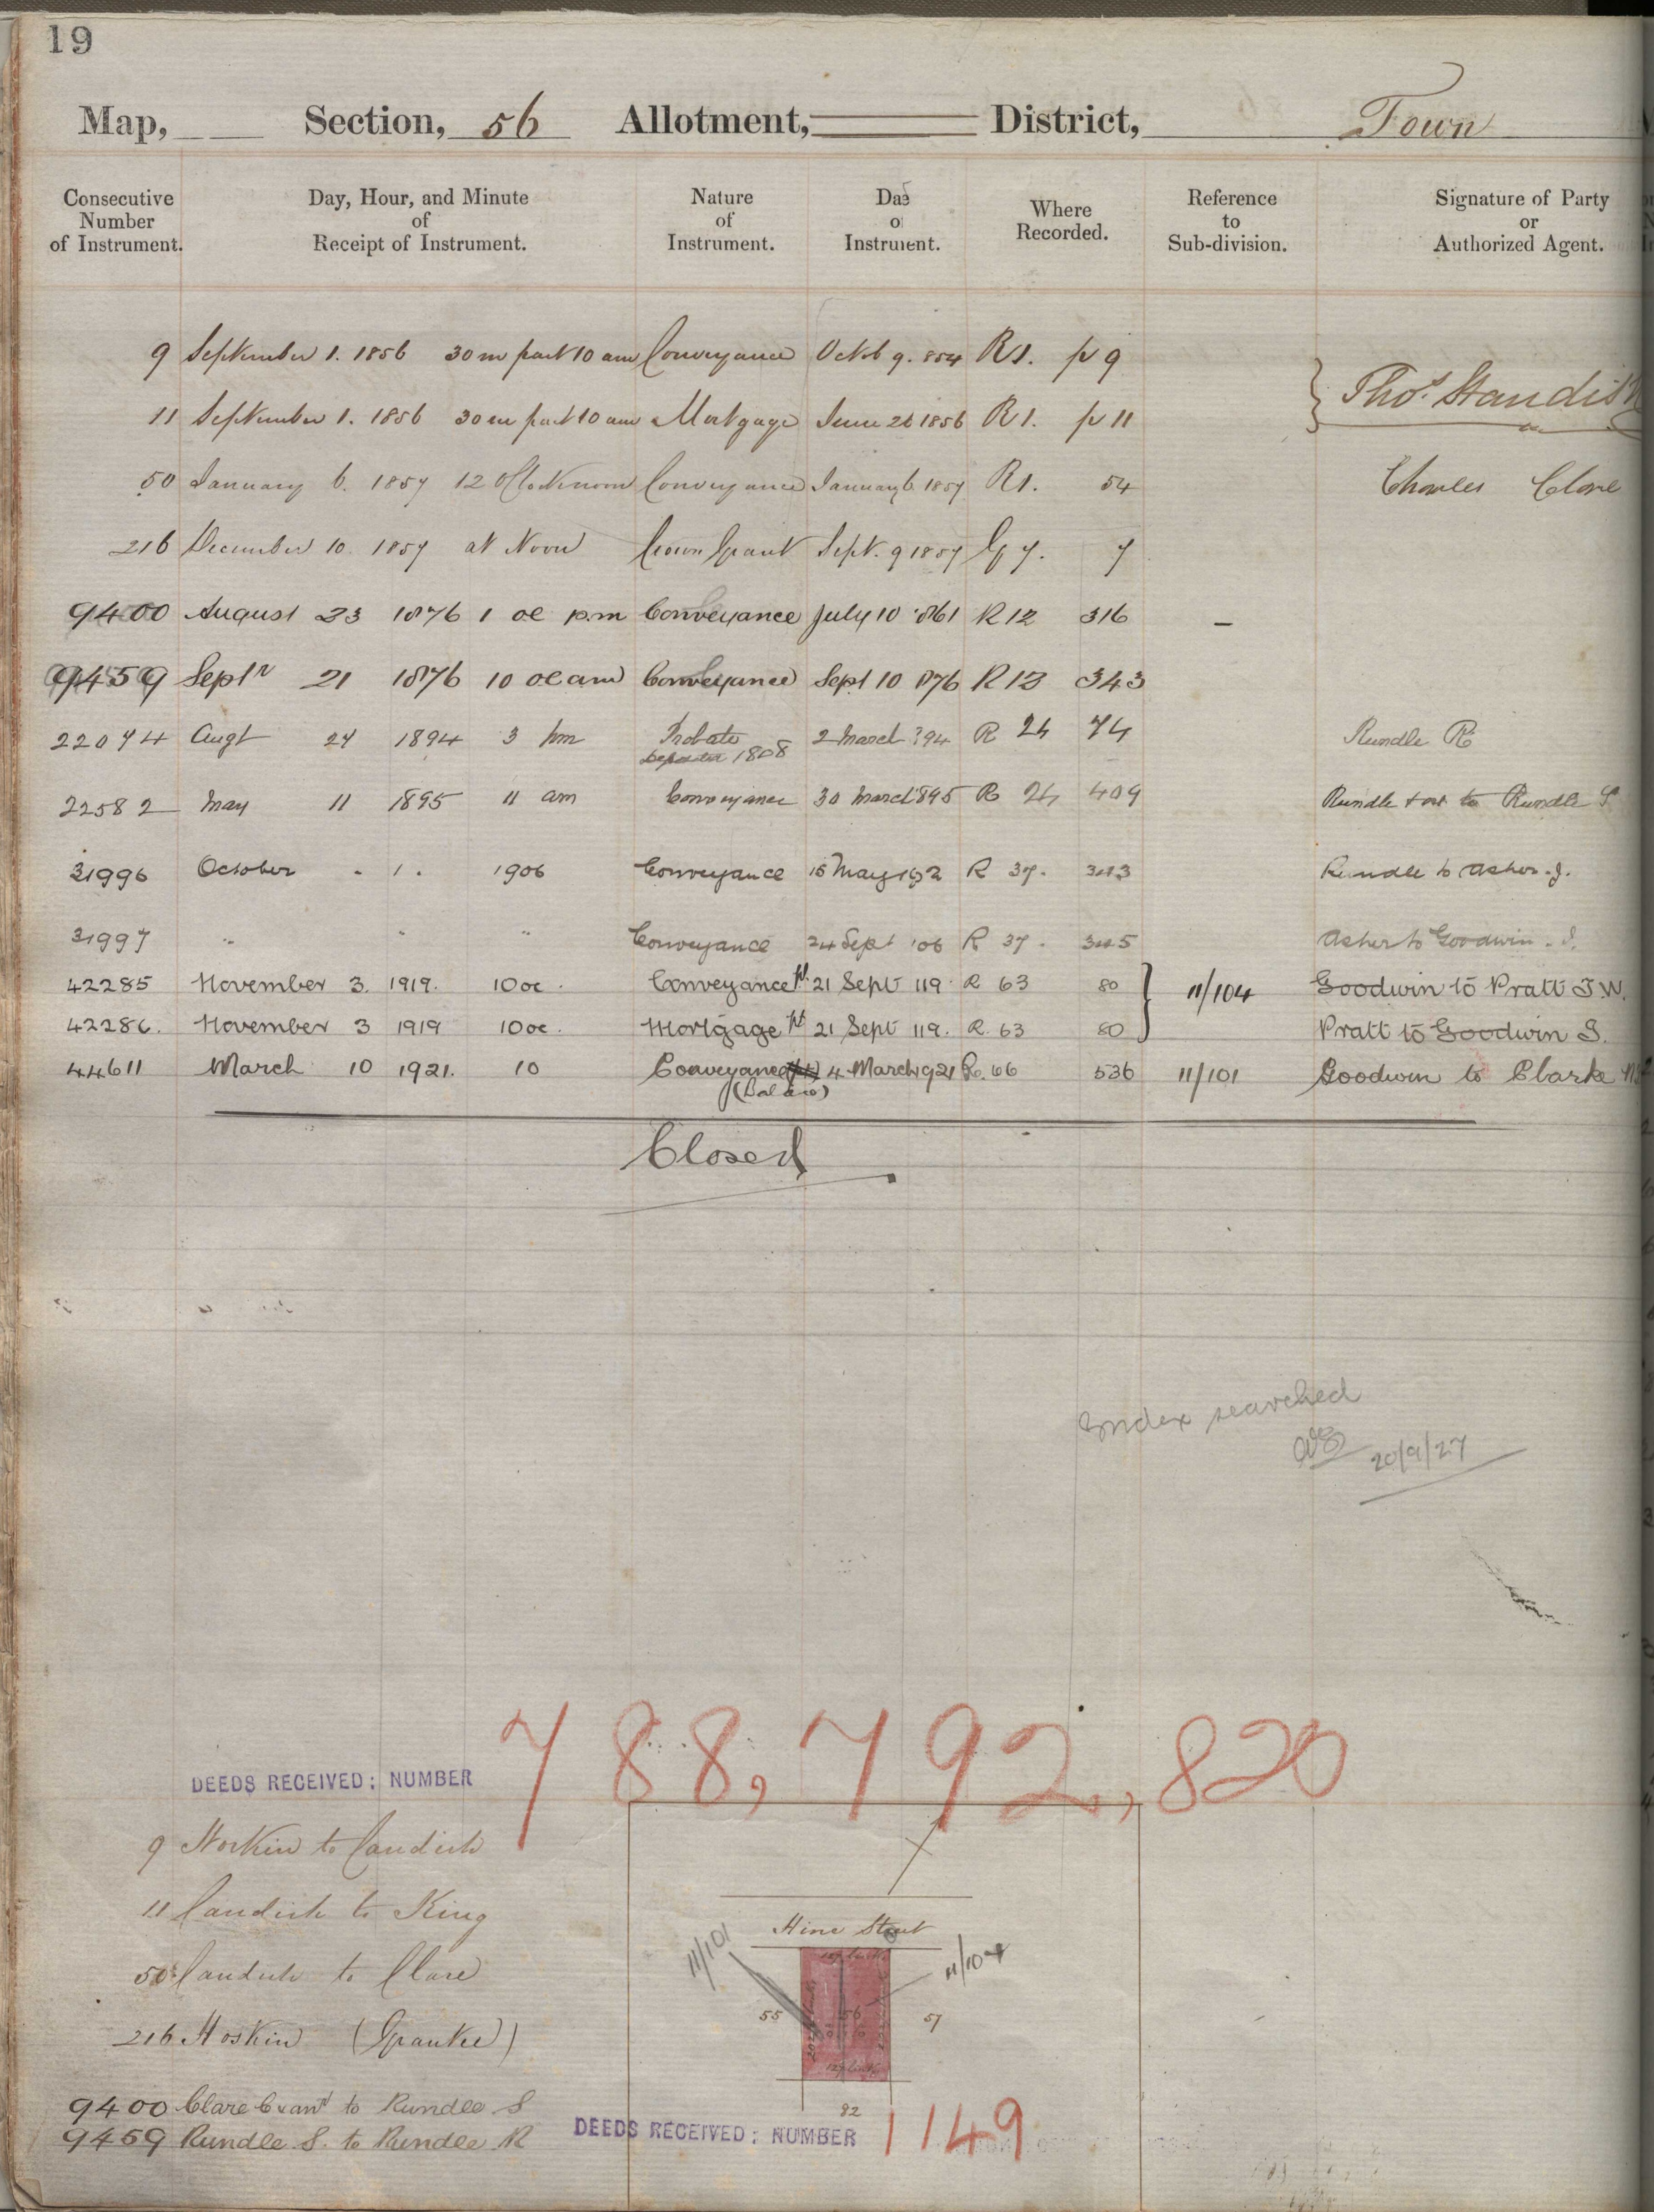 19
Map, Section, 56 Allotment, District, Town
Consecutive Number of Instrument. Day, Hour, and Minute of Receipt of Instrument. Nature of Instrument. Date of Instrument. Where Recorded. Reference to Sub-division. Signature of Party or Authorized Agent.
9 September 1. 1856 30 m past 10 am Conveyance Octob 9. 854 R1. p 9
Thos. Standish
11 September 1. 1856 30 m past 10 am Mortgage June 26 1856 R1. p 11
50 January 6. 1857 12 OClock noon Conveyance January 6 1857 R1. 54 Charles Clare
216 December 10. 1857 at Noon Crown Grant Sept. 9 1857 G 7. 7
9400 August 23 1876 1 oc pm Conveyance July 10 1861 R 12 316 –
9459 Septr 21 1876 10 oc am Conveyance Sept 10 1876 R 13 343
22074 Augt 27 1894 3 pm Probate 2 March 94 R 24 74 Rundle R
1808
22582 May 11 1895 11 am Conveyance 30 March 1895 R 24 409 Rundle + or to Rundle S
31996 October . 1 . 1906 Conveyance 15 May R 37. 343 Rundle to Asher. J.
31997 " " " Conveyance 24 Sept '06 R 37. 345 Asher to Goodwin. S.
42285 November 3. 1919. 10 oc. Conveyance pt. 21 Sept 119. R 63 80 Goodwin to Pratt J.W.
11/104
42286. November 3 1919 10 oc. Mortgage pt 21 Sept 119. R. 63 80 Pratt to Goodwin S.
44611 March 10 1921. 10 Conveyance (pt) 4 March 1921 R. 66 536 11/101 Goodwin to Clarke
(Balance)
Closed
Index searched
20/9/27
788, 792, 820
DEEDS RECEIVED: NUMBER
9 Hoskin to Candish
11 Candish to King
50 Candish to Clare
216 Hoskin (Grantee)
9400 Clare Exant to Rundle S
9459 Rundle S. to Rundle R
Hine Street
11/101
11/104
55
56
57
82
DEEDS RECEIVED: NUMBER 1149